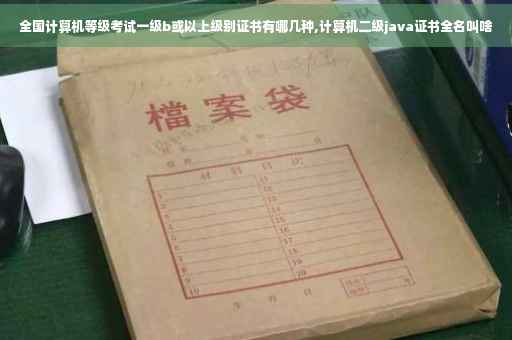 全国计算机等级考试一级b或以上级别证书有哪几种,计算机二级java证书全名叫啥
檔案袋
材料目次
1 11
2 12
3 13
4 14
5 15
6 16
7 17
8 18
9 19
10 20
年月日